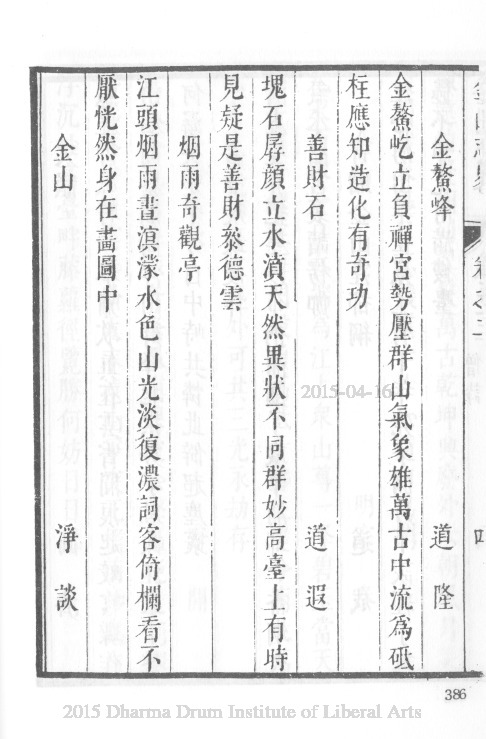 金鰲峰　道隆
金鰲屹立負禪宮勢壓群山氣象雄萬古中流爲砥
柱應知造化有奇功
善財石　道遐
塊石孱顏立水濆天然異狀不同群妙高臺上有時
見疑是善財叅德雲
烟雨奇觀亭
江頭烟雨晝溟濛水色山光淡復濃詞客倚欄看不
厭恍然身在畵圖中
金山　淨談
386
2015-04-16
2015 Dharma Drum Institute of Liberal Arts